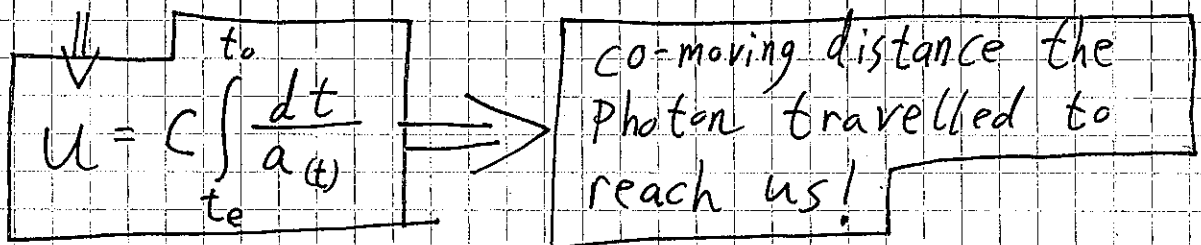 u = c ∫_{t_e}^{t_o} \frac{dt}{a(t)} ⟹ co-moving distance the
photon travelled to
reach us!